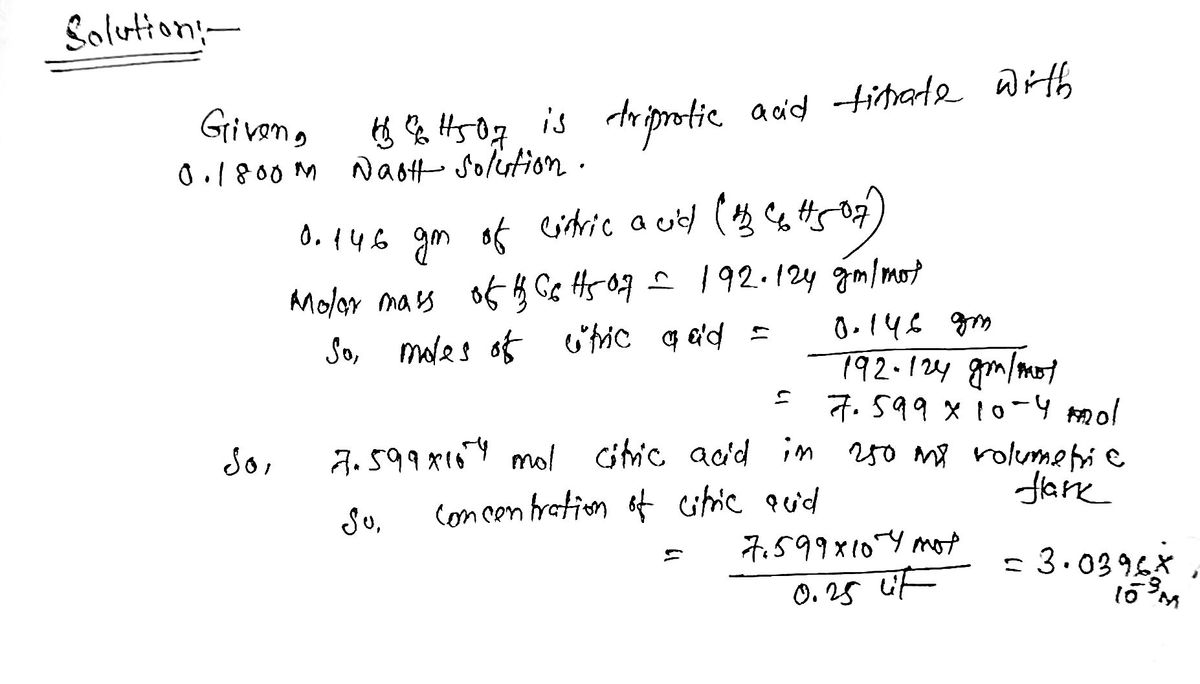 Solution:-
Given, H3C6H5O7 is triprotic acid titrate with
0.1800 M NaOH solution.
0.146 gm of citric acid (H3C6H5O7)
Molar mass of H3C6H5O7 = 192.124 gm/mol
So, moles of citric acid = 0.146 gm
192.124 gm/mol
= 7.599 × 10-4 mol
So, 7.599×10-4 mol citric acid in 250 ml volumetric
flask
So, concentration of citric acid
= 7.599×10-4 mol = 3.0396×
0.25 lit 10-3 M